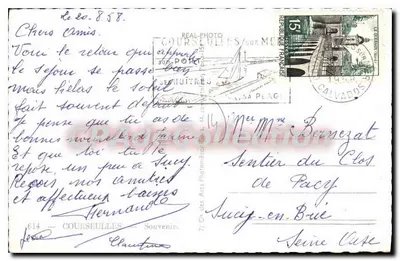 Le 20.8.58.
Chers Amis.
Voici le retour qui approche
le séjour se passe bien
mais hélas le soleil
fait souvent défaut
Je pense que tu as de
bonnes nouvelles de
Et que toi tu te
repose un peu à Sucy
Reçois nos amitiés
et affectueux baisers
Fernande
614 - COURSEULLES Souvenir.
REAL-PHOTO
COURSEULLES sur MER
SON PORT
HUITRES
SA PLAGE
15F
CALVADOS
Mr Mme Bonnezat
Sentier du Clos
de Pacy
Sucy-en-Brie
Seine Oise